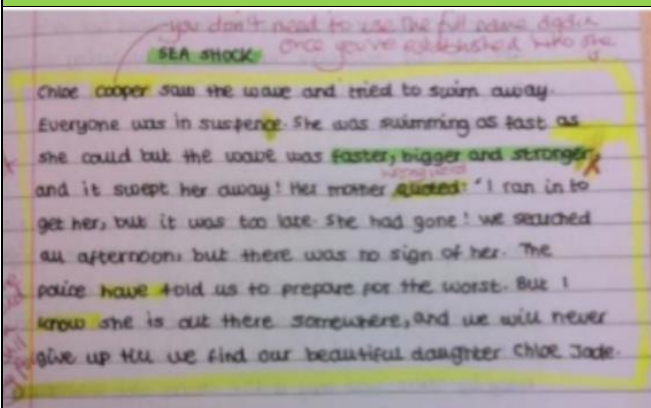 you don't need to use the full name again
once you've established who she
SEA SHOCK
Chloe cooper saw the wave and tried to swim away.
Everyone was in suspence. She was swimming as fast as
she could but the wave was faster, bigger and stronger,
wrong word
and it swept her away! Her mother quoted: "I ran in to
get her, but it was too late. She had gone! we searched
all afternoon, but there was no sign of her. The
police have told us to prepare for the worst. But I
know she is out there somewhere, and we will never
give up till we find our beautiful daughter Chloe Jade.